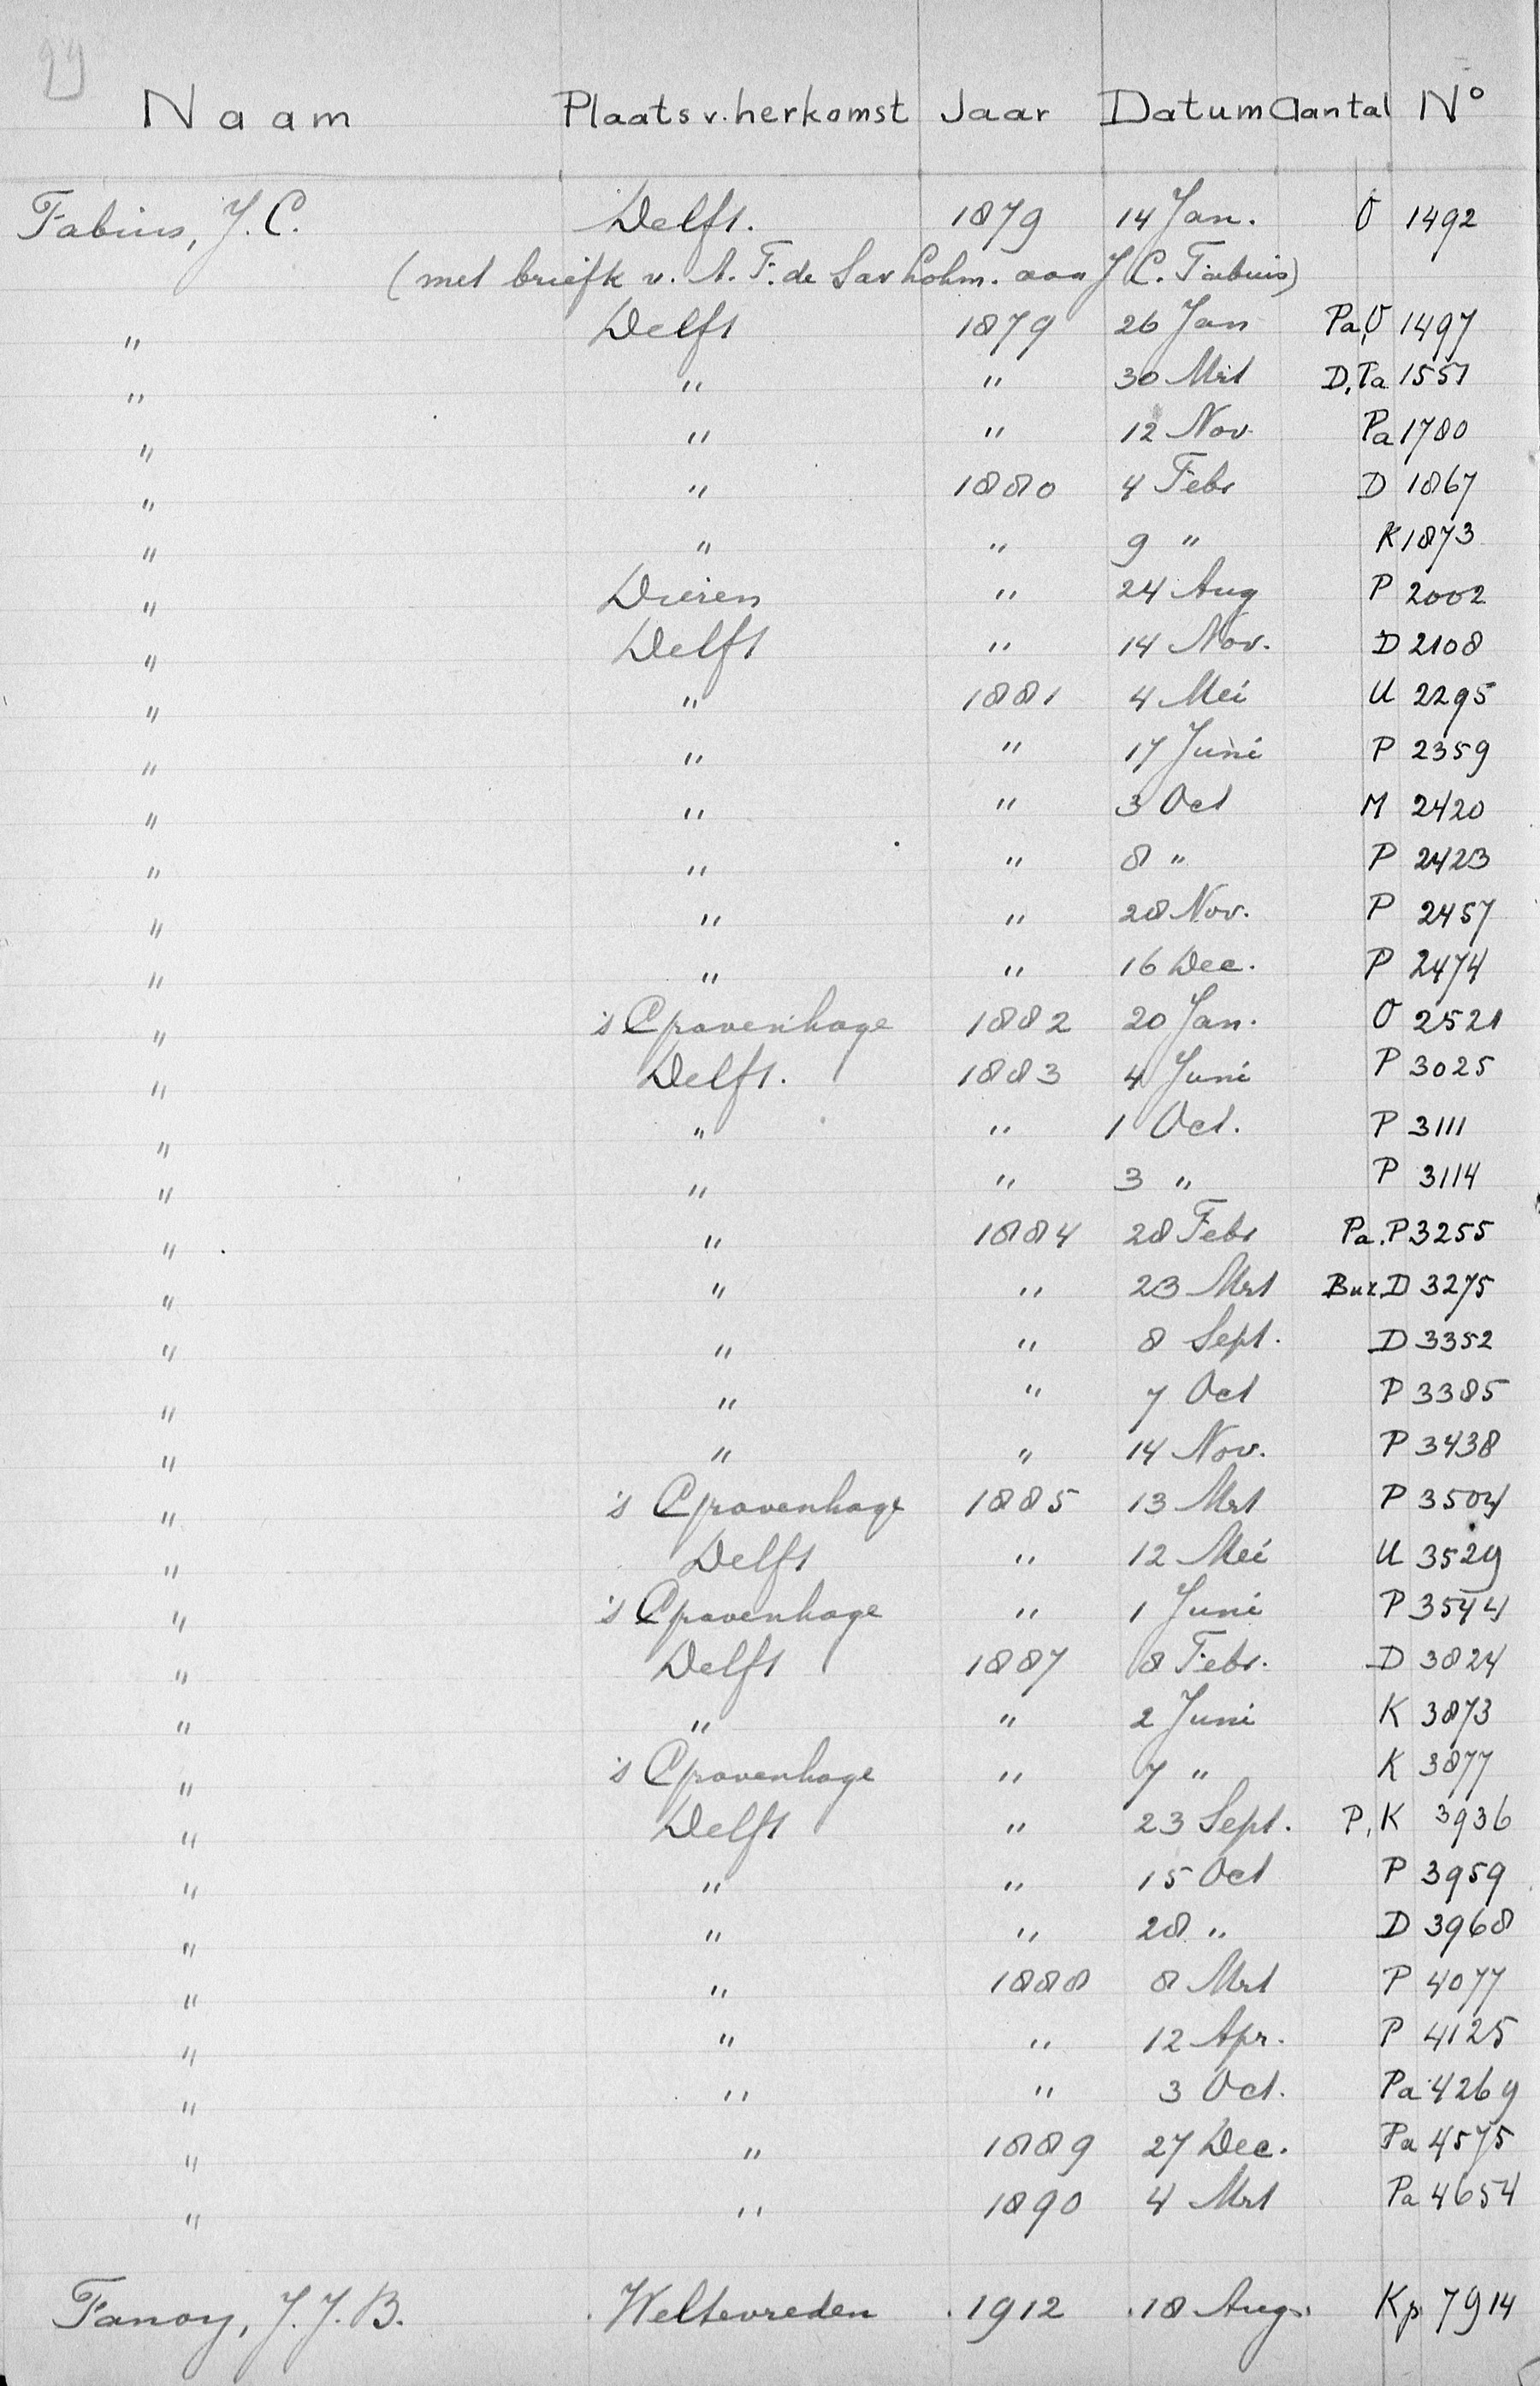 Naam Plaats v. herkomst Jaar Datum Aantal No
Fabius, J.C. Delft. 1879 14 Jan. O 1492
(met briefk v. A. F. de Sav Lohm. aan J C. Fabius)
" Delft 1879 26 Jan Pa, O 1497
" " " 30 Mrt D, Pa 1557
" " " 12 Nov. Pa 1780
" " 1880 4 Febr D 1867
" " " 9 " K 1873
" Dieren " 24 Aug P 2002
" Delft " 14 Nov. D 2108
" " 1881 4 Mei U 2295
" " " 17 Juni P 2359
" " " 3 Oct M 2420
" " " 8 " P 2423
" " " 28 Nov. P 2457
" " " 16 Dec. P 2474
" 's Gravenhage 1882 20 Jan. O 2521
" Delft. 1883 4 Juni P 3025
" " " 1 Oct. P 3111
" " " 3 " P 3114
" " 1884 28 Febr Pa. P 3255
" " " 23 Mrt D 3275
" " " 8 Sept. D 3352
" " " 7 Oct P 3385
" " " 14 Nov. P 3438
" 's Gravenhage 1885 13 Mrt P 3504
" Delft " 12 Mei U 3529
" 's Gravenhage " 1 Juni P 3544
" Delft 1887 8 Febr. D 3824
" " " 2 Juni K 3873
" 's Gravenhage " 7 " K 3877
" Delft " 23 Sept. P, K 3936
" " " 15 Oct P 3959
" " " 28 " D 3968
" " 1888 8 Mrt P 4077
" " " 12 Apr. P 4125
" " " 3 Oct. Pa 4269
" " 1889 27 Dec. Pa 4575
" " 1890 4 Mrt Pa 4654
Fanoy, J. J. B. Weltevreden 1912 18 Aug. Kp 7914